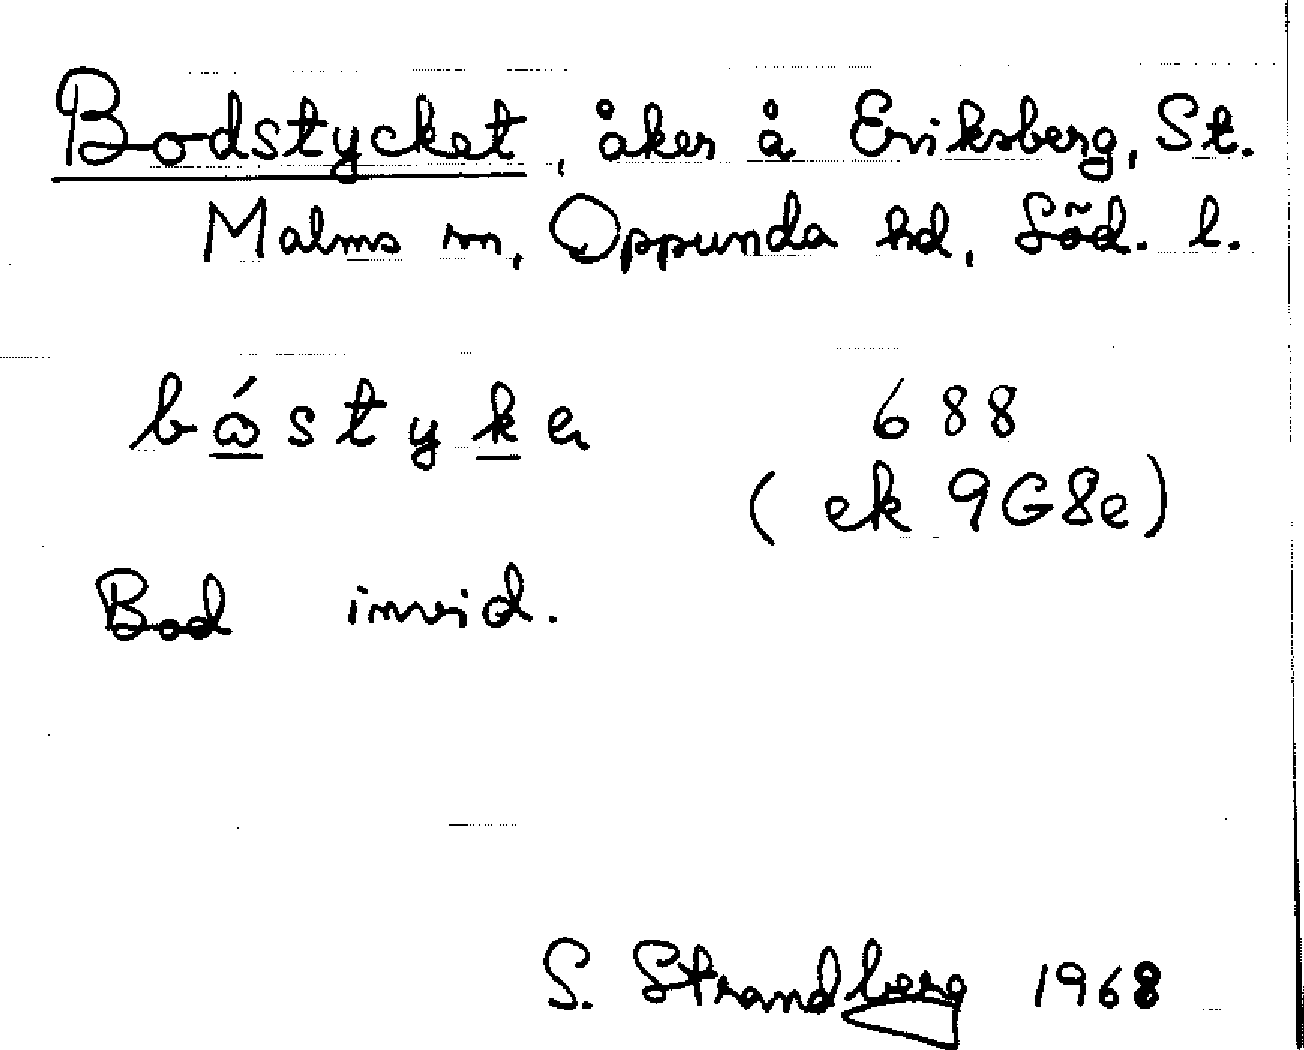 Bodstycket, åker å Eriksberg, St.
Malms sn, Oppunda hd, Söd. l.
bǿstyke 688
(ek 9G8e)
Bod invid.
S. Strandberg 1968